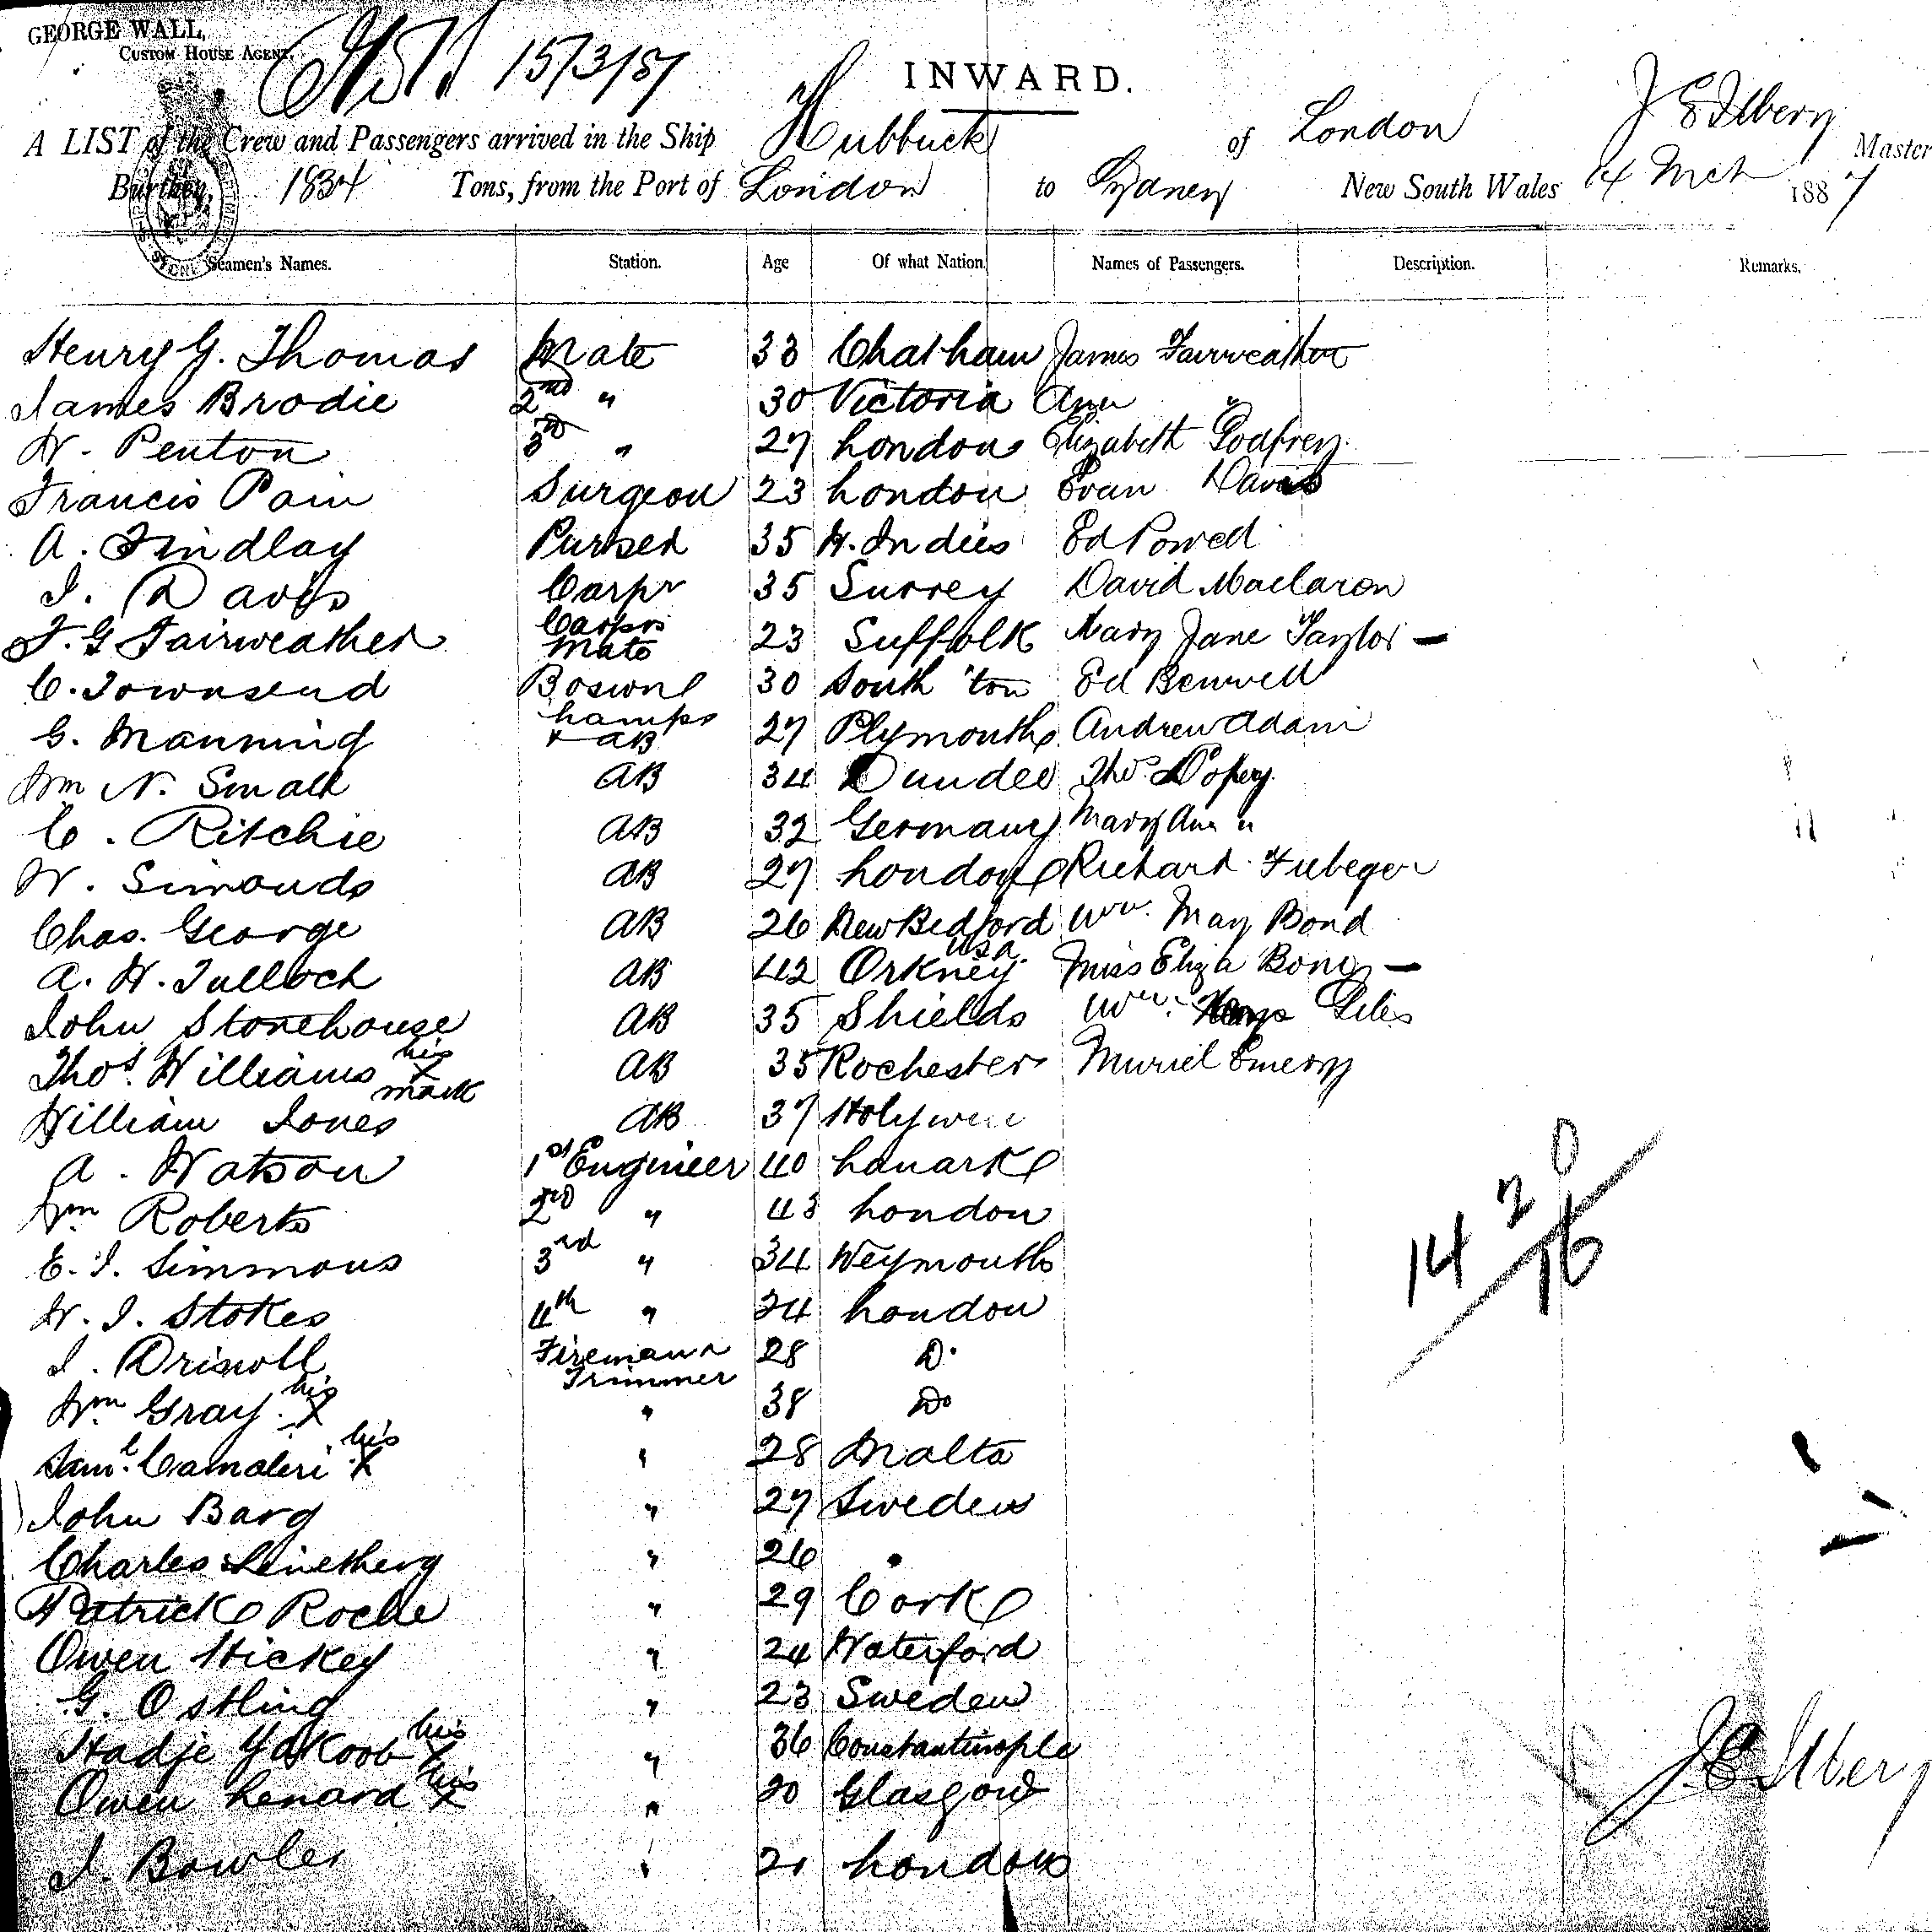 GEORGE WALL,
CUSTOM HOUSE AGENT,
15/3/87
INWARD.
A LIST of the Crew and Passengers arrived in the Ship Hubbuck of London J E Ilbery Master
Burthen, 1834 Tons, from the Port of London to Sydney New South Wales 14 Mch 1887
Seamen's Names. Station. Age Of what Nation. Names of Passengers. Description. Remarks.
Henry G. Thomas Mate 33 Chatham James Fairweather
James Brodie 2nd " 30 Victoria Ann "
W. Penton 3rd " 27 London Elizabeth Godfrey
Francis Pain Surgeon 23 London Evan Davis
A. Findlay Purser 35 W. Indies Ed Powell
J. Davis Carpr 35 Surrey David Maclaron
F. G Fairweather Carprs Mate 23 Suffolk Mary Jane Taylor
C. Townsend Boswn 30 South'ton Ed Benwell
G. Manning Lamps & AB 27 Plymouth Andrew Adam
Wm N. Small AB 34 Dundee Thos
C. Ritchie AB 32 Germany Mary Ann "
W. Simonds AB 27 London Richard
Chas. George AB 26 New Bedford USA Wm. May Bond
A. H. Tulloch AB 42 Orkney Miss Eliza Bond
John Stonehouse AB 35 Shields Wm. Giles
Thos. Williams his X mark AB 35 Rochester Muriel Emery
William Jones AB 37 Holywell
A. Watson 1st Engineer 40 Lanark
Wm Roberts 2nd " 43 London
E. J. Simmons 3rd " 34 Weymouth
W. J. Stokes 4th " 24 London
J. Driscoll Fireman & Trimmer 28 Do
Wm Gray his X " 38 Do
Saml. Camaleri his X " 28 Malta
John Barg " 27 Sweden
Charles " 26 "
Patrick Roche " 29 Cork
Owen Hickey " 24 Waterford
G. Ostling " 23 Sweden
Hadje Yakoob his X " 36 Constantinople
Owen Lenard his X " 20 Glasgow
J. Bowler " 21 London
14 2 0
16
J E Ilbery